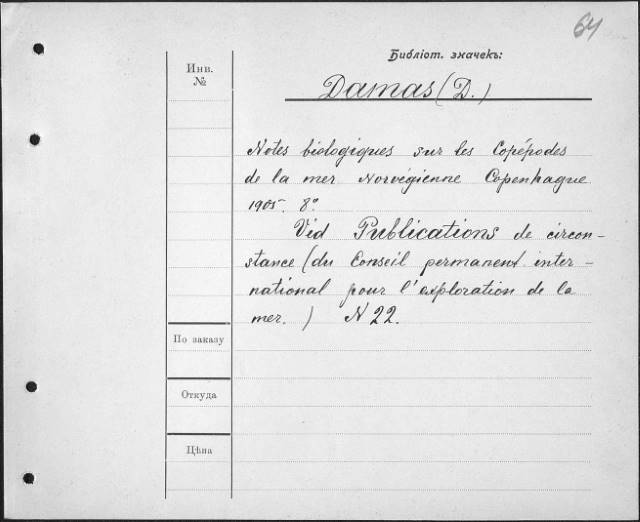 64
Библіот. значекъ:
Инв.
№
Damas (D.)
Notes biologiques sur les Copépodes
de la mer Norvégienne Copenhague
1905. 8°.
Vid Publications de circon-
stance (du Conseil permanent inter-
national pour l'exploration de la
mer.) N 22.
По заказу
Откуда
Цѣна